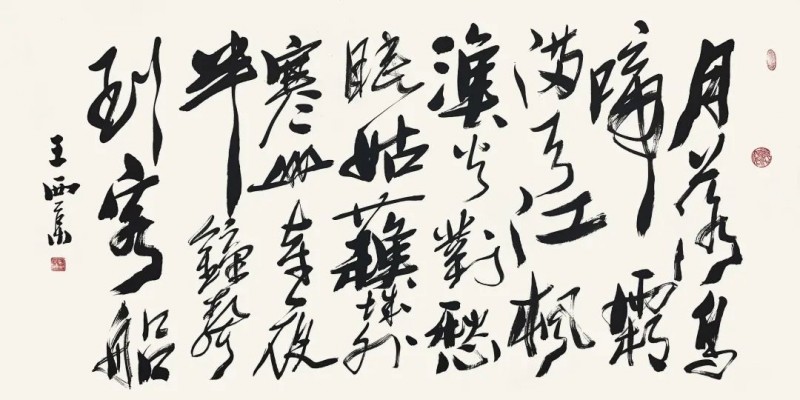 月落烏
啼霜
滿天江楓
漁火對愁
眠姑蘇城外
寒山寺夜
半鐘聲
到客船
王西